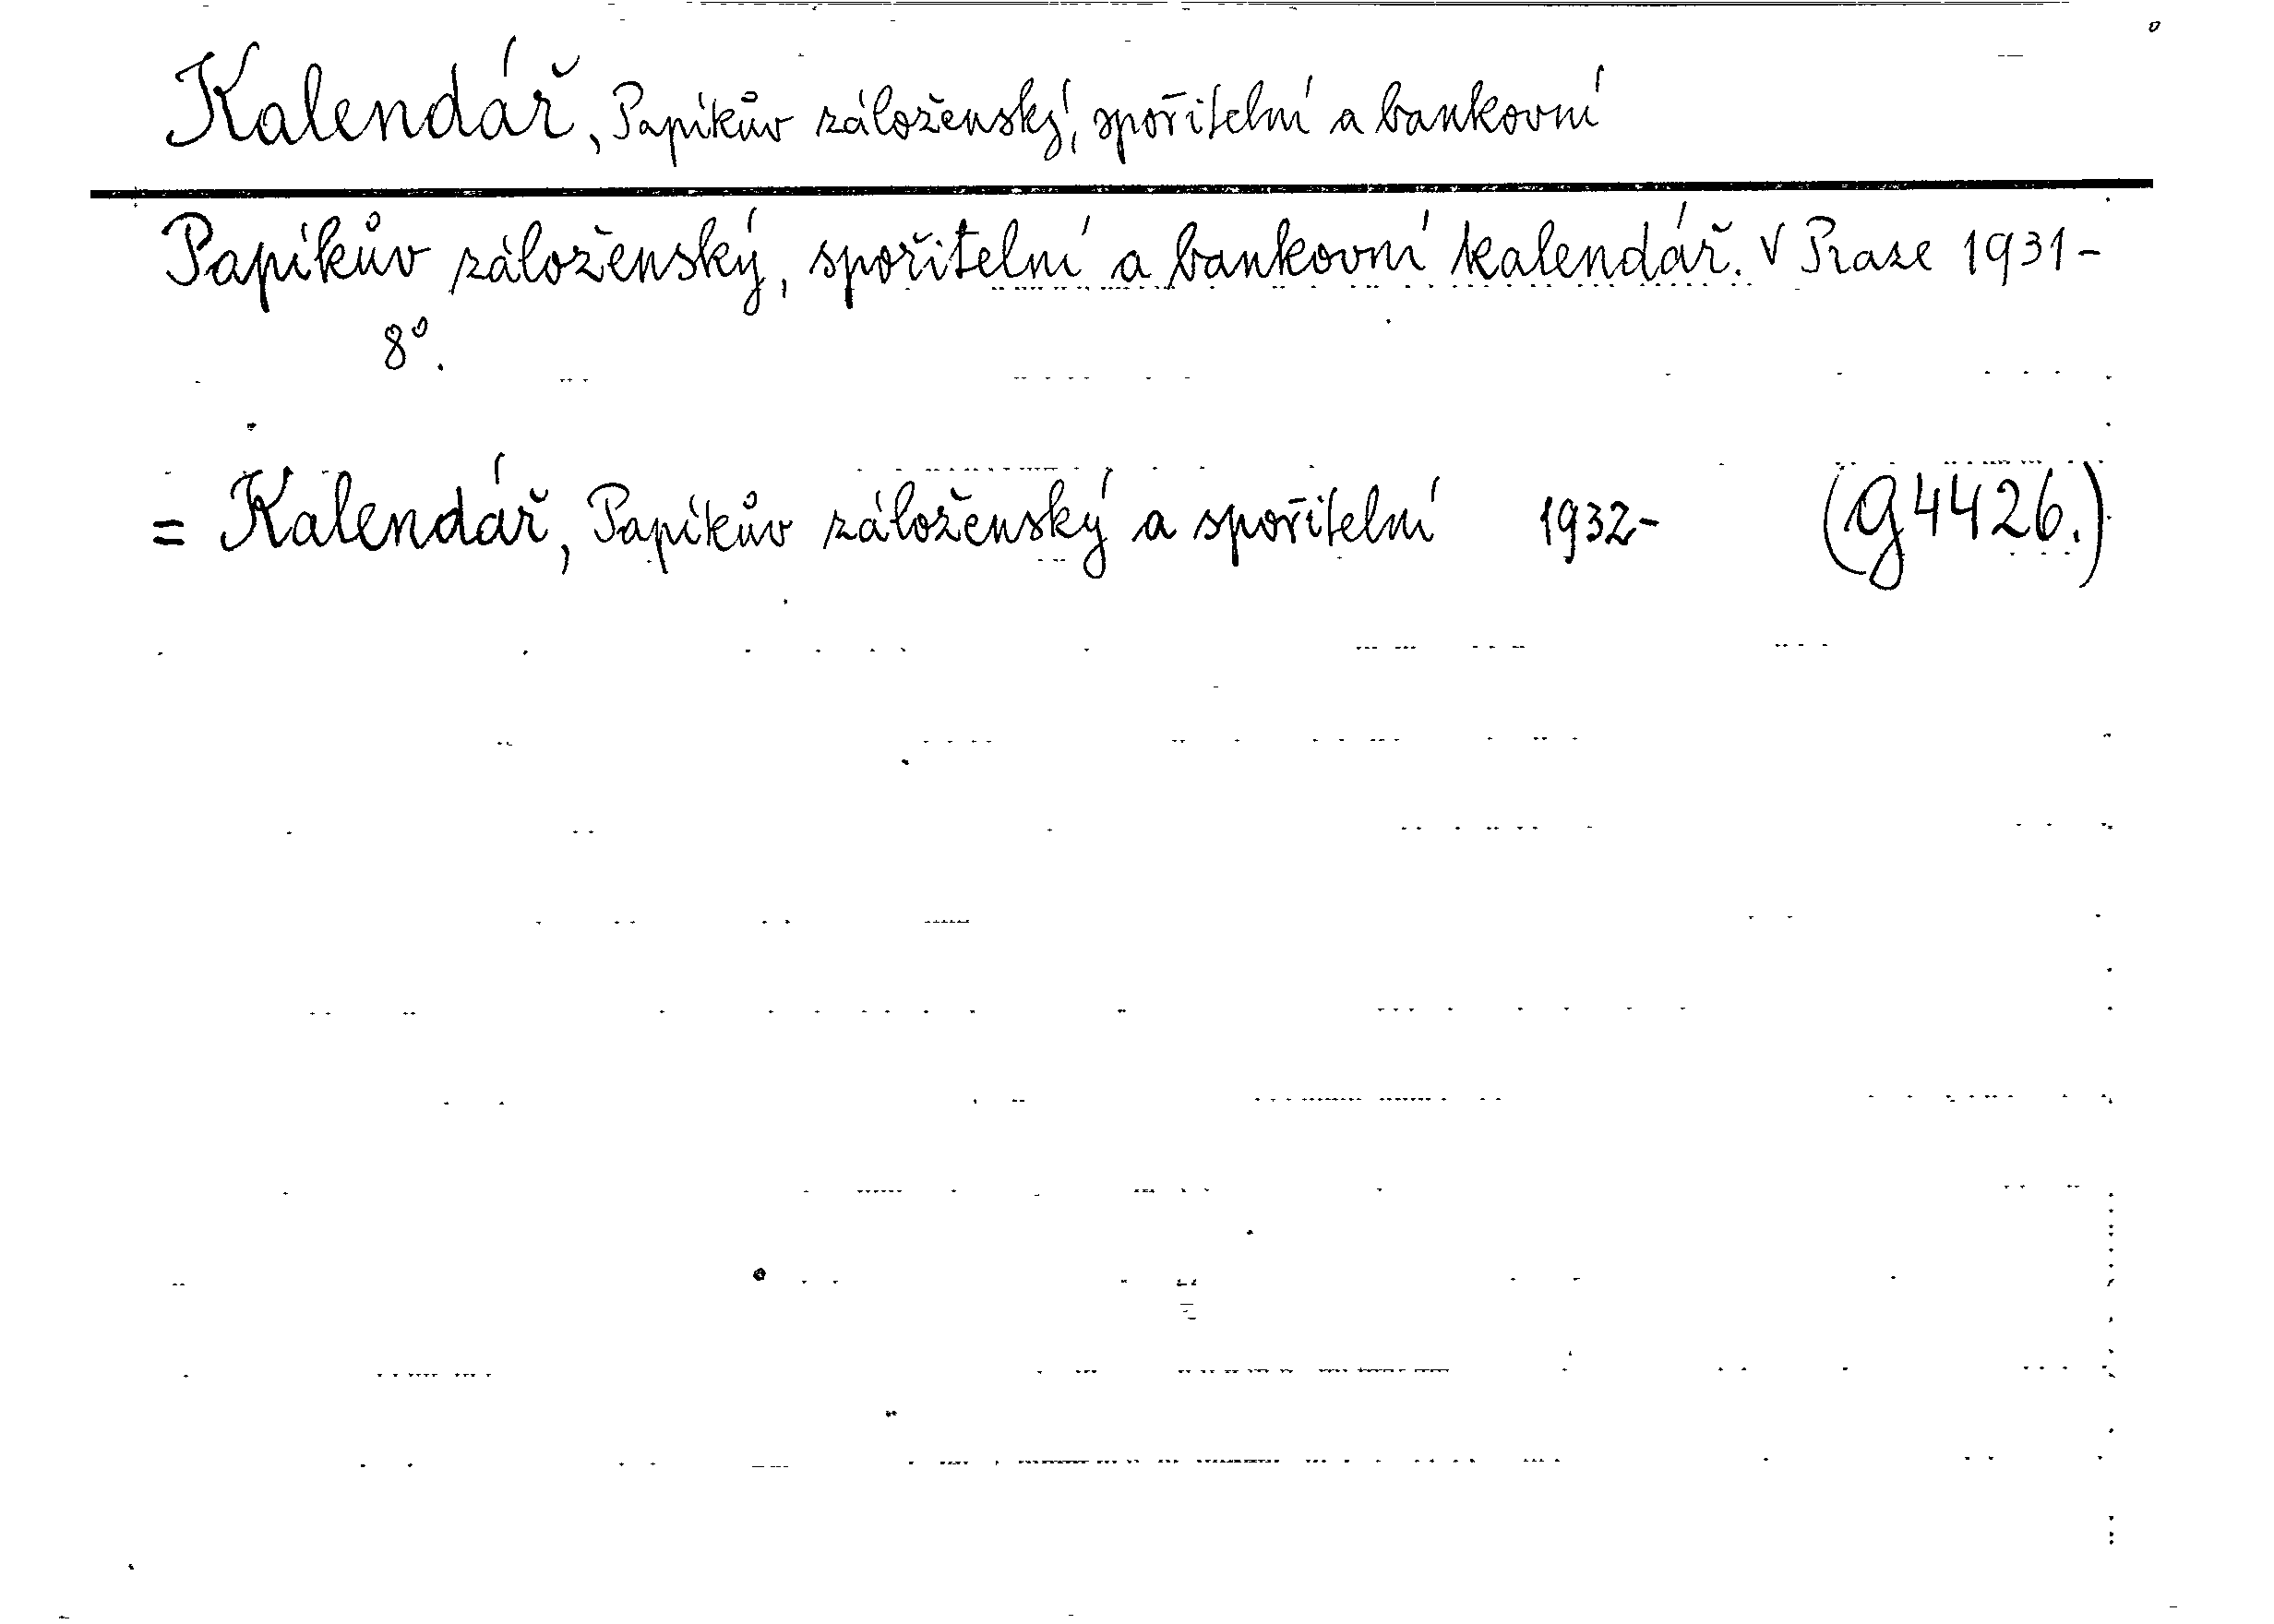 Kalendář, Papíkův záloženský, spořitelní a bankovní
Papíkův záloženský, spořitelní a bankovní kalendář. V Praze 1931-
8°.
= Kalendář, Papíkův záloženský a spořitelní 1932- (G 4426.)